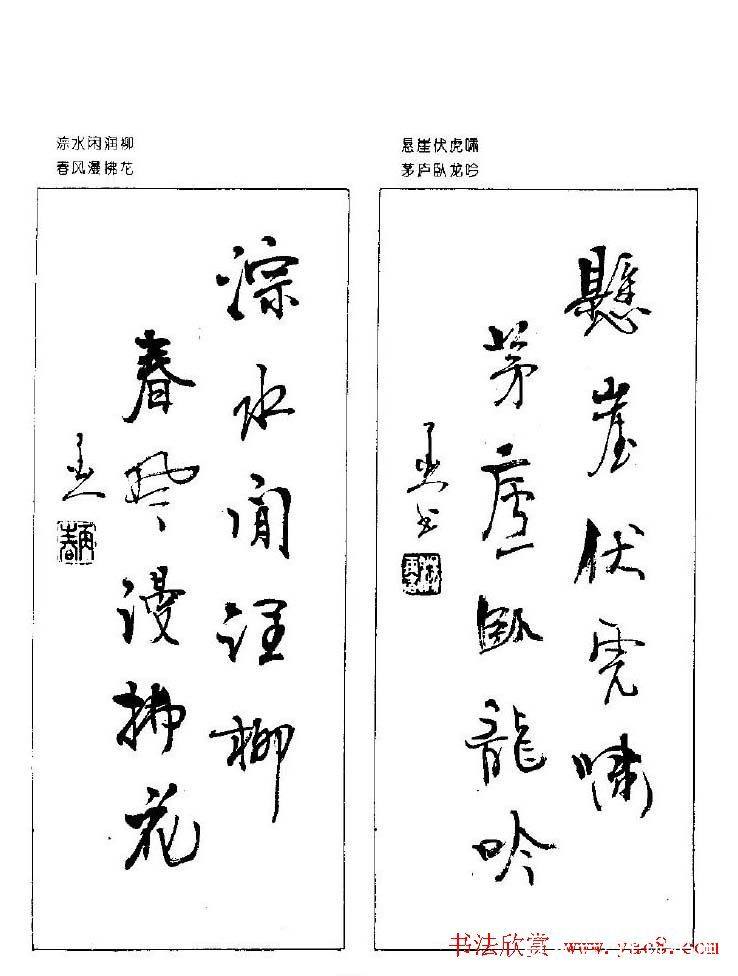 淙水闲润柳
春风漫拂花
悬崖伏虎啸
茅庐卧龙吟
淙水閒潤柳
春風漫拂花
懸崖伏虎嘯
茅廬臥龍吟
书法欣赏 www.yac8.com